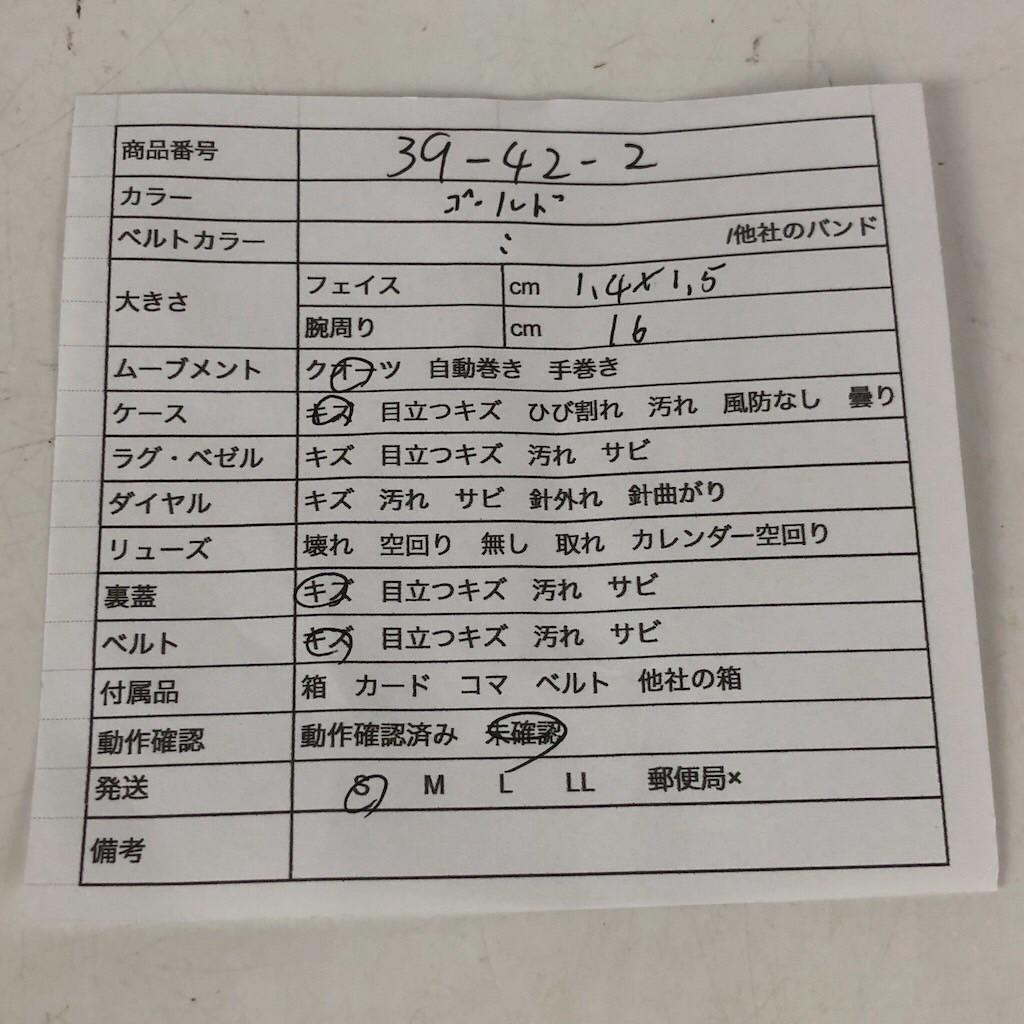 商品番号 39-42-2
カラー ゴールド
ベルトカラー 〃 /他社のバンド
大きさ フェイス cm 1,4×1,5
腕周り cm 16
ムーブメント クオーツ 自動巻き 手巻き
ケース キズ 目立つキズ ひび割れ 汚れ 風防なし 曇り
ラグ・ベゼル キズ 目立つキズ 汚れ サビ
ダイヤル キズ 汚れ サビ 針外れ 針曲がり
リューズ 壊れ 空回り 無し 取れ カレンダー空回り
裏蓋 キズ 目立つキズ 汚れ サビ
ベルト キズ 目立つキズ 汚れ サビ
付属品 箱 カード コマ ベルト 他社の箱
動作確認 動作確認済み 未確認
発送 S M L LL 郵便局×
備考